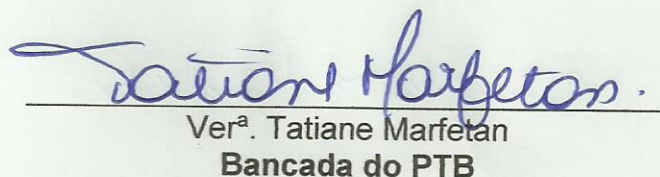 Tatiane Marfetan.
Verª. Tatiane Marfetan
Bancada do PTB